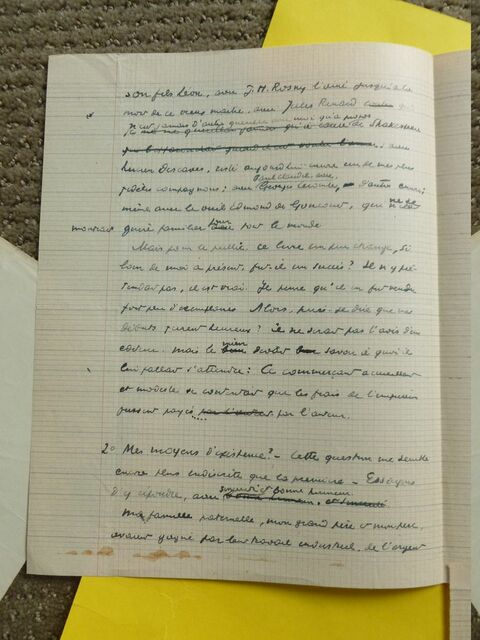 son fils Léon, avec J. H. Rosny l'aîné jusqu'à la
mort de ce vieux maître, avec Jules Renard
je n'eus jamais d'autre querelle avec moi qu'à propos
qu'à cause de Shakespeare
avec
Lucien Descaves, resté aujourd'hui encore un de mes plus
fidèles compagnons ; avec Georges Lecomte, d'autres encore ;
Paul Claudel, avec
même avec le vieil Edmond de Goncourt, qui ne se
montrait guère familier pour tout le monde
Mais pour le public, ce livre un peu change, Si
bon de moi à présent, fut-il un succès ? Je n'y pré-
tendait pas, c'est vrai. Je pense qu'il en fut vendu
fort peu d'exemplaires. Alors, puis-je dire que mes
débuts furent heureux ? Ce ne serait pas l'avis d'un
éditeur. Mais le mien devait savoir à quoi il
lui fallait s'attendre : Ce commerçant
et modeste se contentait que les frais de l'impression
fussent payés par l'auteur.
2° Mes moyens d'existence ? – Cette question me semble
encore plus indiscrète que la première – Essayons
d'y répondre, avec simplicité et bonne humeur
Ma famille paternelle, mon grand père et mon père,
avaient gagné par leur travail industriel, de l'argent